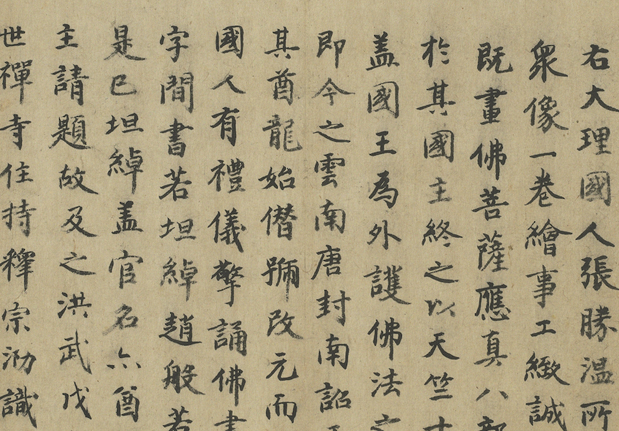 右大理國人張勝温所
衆像一卷繪事工緻誠
既畫佛菩薩應真八部
於其國主終之以天竺十
盖國王為外護佛法之
即今之雲南唐封南詔
其酋龍始僭號改元而
國人有禮儀擎誦佛書
字間書若坦綽趙般若
是已坦綽盖官名亦酋
主請題故及之洪武戊
世禪寺住持釋宗泐識